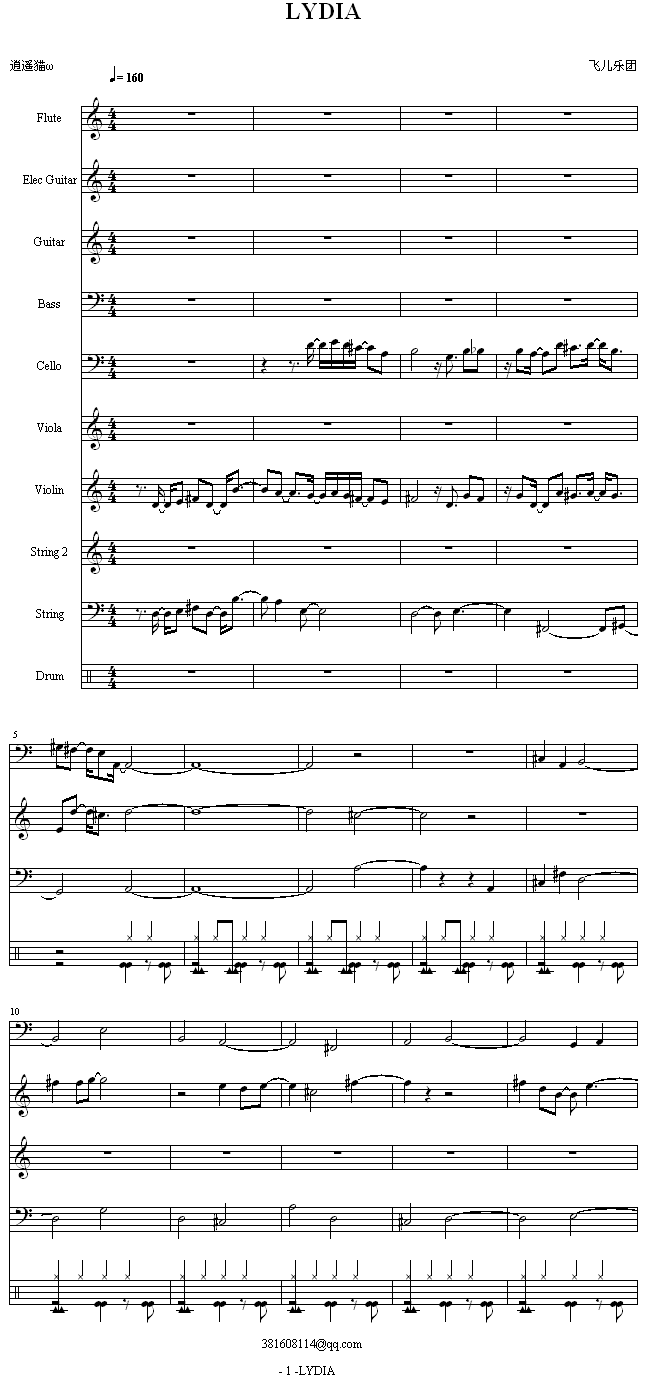 LYDIA
逍遥猫ω
飞儿乐团
= 160
Flute
Elec Guitar
Guitar
Bass
Cello
Viola
Violin
String 2
String
Drum
5
10
381608114@qq.com
- 1 -LYDIA